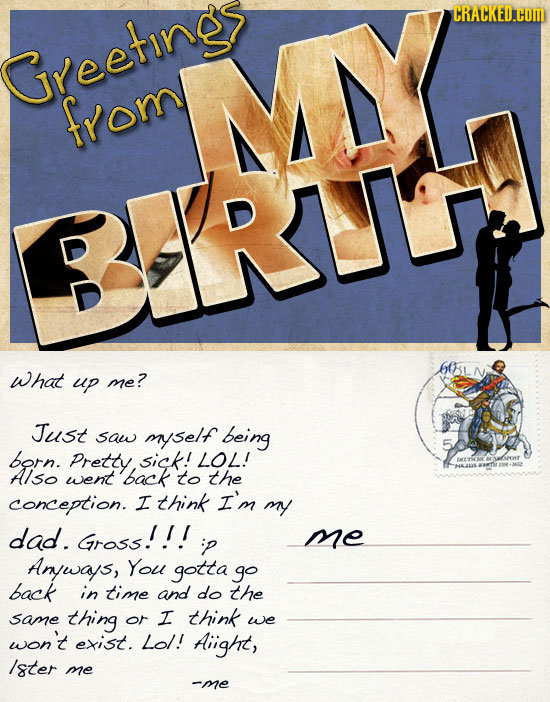 CRACKED.COM
Greetings
from
MY
BIRTH
What up me?
Just saw myself being
born. Pretty sick! LOL!
Also went back to the
conception. I think I'm my
dad. Gross!!! :p
Anyways, You gotta go
back in time and do the
same thing or I think we
won't exist. Lol! Aiight,
l8ter me
-me
me
60
DEUTSCHE BUNDESPOST